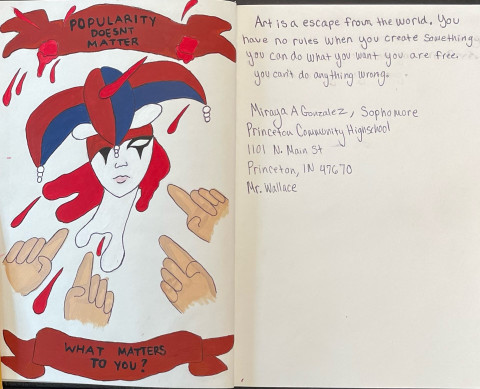 POPULARITY
DOESNT
MATTER
WHAT MATTERS
TO YOU?
Art is a escape from the world. You
have no rules when you create something
you can do what you want you are free.
you can't do anything wrong.
Miraya A Gonzalez, Sophomore
Princeton Community Highschool
1101 N. Main St
Princeton, IN 47670
Mr. Wallace